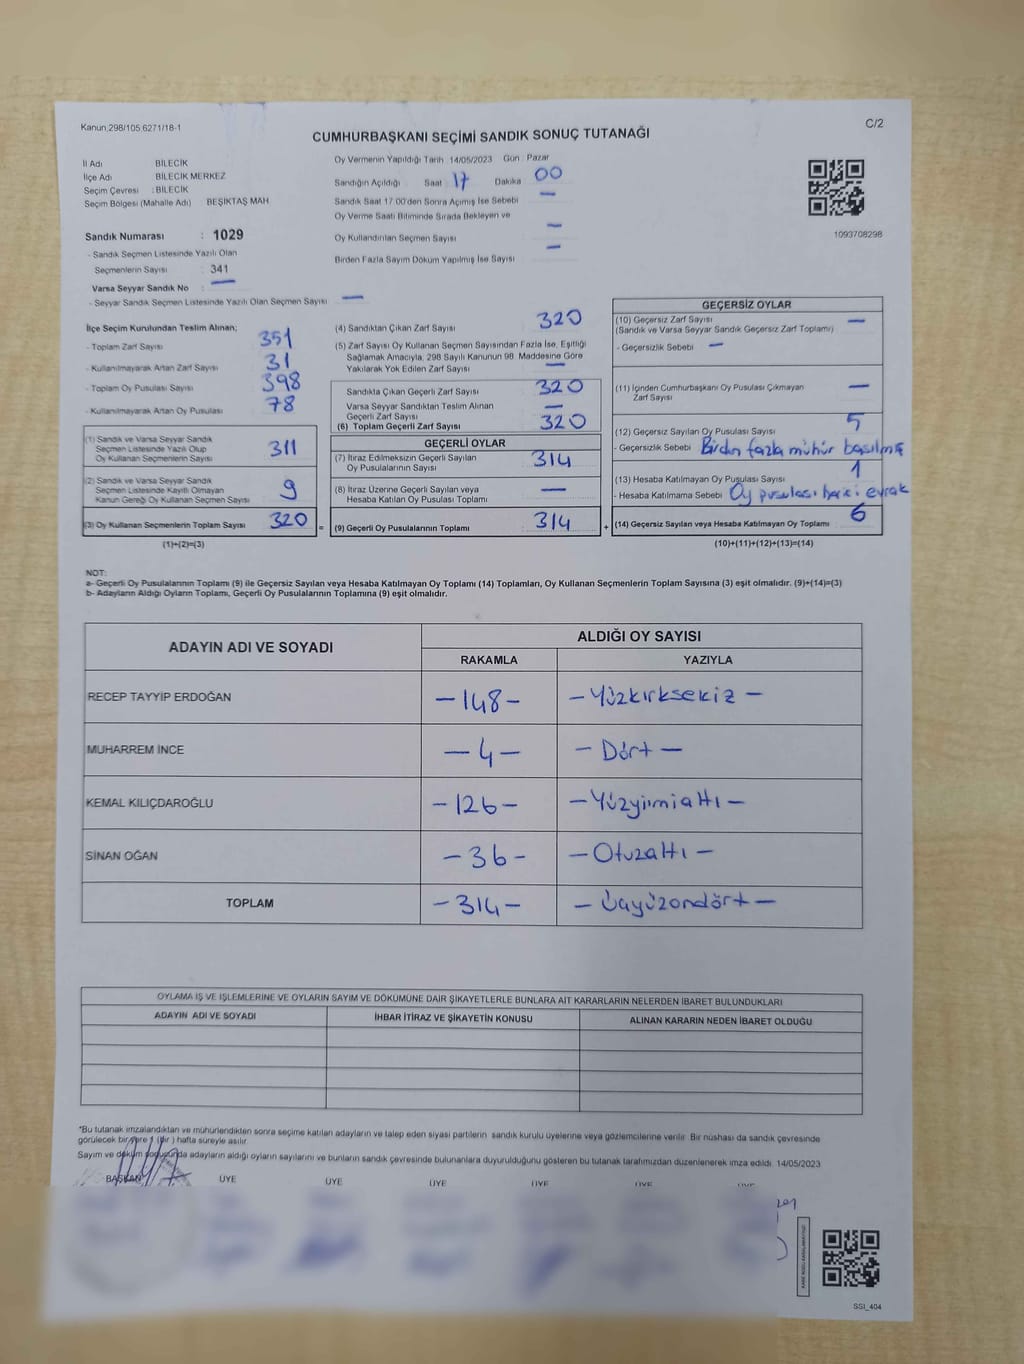 Kanun 298/105 6271/18-1
C/2
CUMHURBAŞKANI SEÇİMİ SANDIK SONUÇ TUTANAĞI
İl Adı BİLECİK
İlçe Adı BİLECİK MERKEZ
Seçim Çevresi : BİLECİK
Seçim Bölgesi (Mahalle Adı) BEŞİKTAŞ MAH
Sandık Numarası : 1029
- Sandık Seçmen Listesinde Yazılı Olan
Seçmenlerin Sayısı : 341
Varsa Seyyar Sandık No : —
- Seyyar Sandık Seçmen Listesinde Yazılı Olan Seçmen Sayısı —
Oy Vermenin Yapıldığı Tarih 14/05/2023 Gün Pazar
Sandığın Açıldığı Saat 17 Dakika 00
Sandık Saat 17.00'den Sonra Açımış İse Sebebi —
Oy Verme Saati Bitiminde Sırada Bekleyen ve
Oy Kullandırılan Seçmen Sayısı —
Birden Fazla Sayım Döküm Yapılmış İse Sayısı —
1093708298
İlçe Seçim Kurulundan Teslim Alınan;
- Toplam Zarf Sayısı 351
- Kullanılmayarak Artan Zarf Sayısı 31
- Toplam Oy Pusulası Sayısı 398
- Kullanılmayarak Artan Oy Pusulası 78
(1) Sandık ve Varsa Seyyar Sandık
Seçmen Listesinde Yazılı Olup
Oy Kullanan Seçmenlerin Sayısı 311
(2) Sandık ve Varsa Seyyar Sandık
Seçmen Listesinde Kayıtlı Olmayan
Kanun Gereği Oy Kullanan Seçmen Sayısı 9
(3) Oy Kullanan Seçmenlerin Toplam Sayısı 320 =
(1)+(2)=(3)
(4) Sandıktan Çıkan Zarf Sayısı 320
(5) Zarf Sayısı Oy Kullanan Seçmen Sayısından Fazla İse, Eşitliği
Sağlamak Amacıyla, 298 Sayılı Kanunun 98. Maddesine Göre
Yakılarak Yok Edilen Zarf Sayısı —
Sandıkta Çıkan Geçerli Zarf Sayısı 320
Varsa Seyyar Sandıktan Teslim Alınan
Geçerli Zarf Sayısı —
(6) Toplam Geçerli Zarf Sayısı 320
GEÇERLİ OYLAR
(7) İtiraz Edilmeksizin Geçerli Sayılan
Oy Pusulalarının Sayısı 314
(8) İtiraz Üzerine Geçerli Sayılan veya
Hesaba Katılan Oy Pusulası Toplamı —
(9) Geçerli Oy Pusulalarının Toplamı 314 +
GEÇERSİZ OYLAR
(10) Geçersiz Zarf Sayısı
(Sandık ve Varsa Seyyar Sandık Geçersiz Zarf Toplamı) —
- Geçersizlik Sebebi —
(11) İçinden Cumhurbaşkanı Oy Pusulası Çıkmayan
Zarf Sayısı —
(12) Geçersiz Sayılan Oy Pusulası Sayısı 5
- Geçersizlik Sebebi Birden fazla mühür basılmış
(13) Hesaba Katılmayan Oy Pusulası Sayısı 1
- Hesaba Katılmama Sebebi Oy pusulası harici evrak
(14) Geçersiz Sayılan veya Hesaba Katılmayan Oy Toplamı 6
(10)+(11)+(12)+(13)=(14)
NOT:
a- Geçerli Oy Pusulalarının Toplamı (9) ile Geçersiz Sayılan veya Hesaba Katılmayan Oy Toplamı (14) Toplamları, Oy Kullanan Seçmenlerin Toplam Sayısına (3) eşit olmalıdır. (9)+(14)=(3)
b- Adayların Aldığı Oyların Toplamı, Geçerli Oy Pusulalarının Toplamına (9) eşit olmalıdır.
ADAYIN ADI VE SOYADI
ALDIĞI OY SAYISI
RAKAMLA YAZIYLA
RECEP TAYYİP ERDOĞAN -148- -Yüzkırksekiz-
MUHARREM İNCE -4- -Dört-
KEMAL KILIÇDAROĞLU -126- -Yüzyirmialtı-
SİNAN OĞAN -36- -Otuzaltı-
TOPLAM -314- -Üçyüzondört-
OYLAMA İŞ VE İŞLEMLERİNE VE OYLARIN SAYIM VE DÖKÜMÜNE DAİR ŞİKAYETLERLE BUNLARA AİT KARARLARIN NELERDEN İBARET BULUNDUKLARI
ADAYIN ADI VE SOYADI İHBAR İTİRAZ VE ŞİKAYETİN KONUSU ALINAN KARARIN NEDEN İBARET OLDUĞU
*Bu tutanak imzalandıktan ve mühürlendikten sonra seçime katılan adayların ve talep eden siyasi partilerin sandık kurulu üyelerine veya gözlemcilerine verilir. Bir nüshası da sandık çevresinde
görülecek bir yere 1 (bir) hafta süreyle asılır.
Sayım ve döküm sonucunda adayların aldığı oyların sayılarını ve bunların sandık çevresinde bulunanlara duyurulduğunu gösteren bu tutanak tarafımızdan düzenlenerek imza edildi. 14/05/2023
BAŞKAN ÜYE ÜYE ÜYE ÜYE ÜYE ÜYE
SSI_404